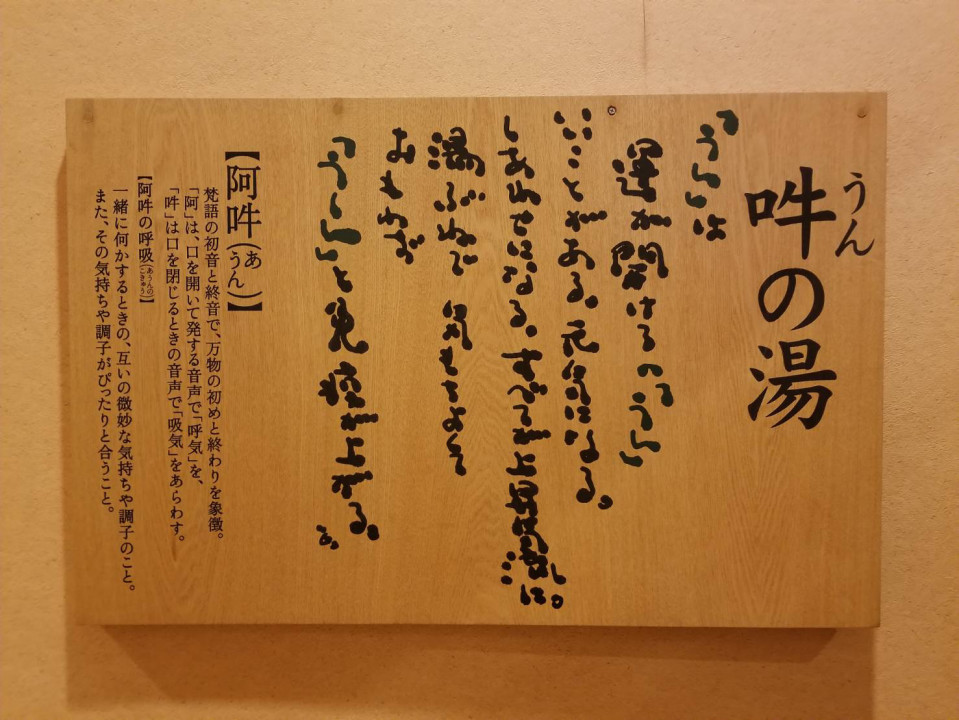 吽の湯
うん
「うん」は
運が開けるの「うん」
いいことがある。元気になる。
しあわせになる。すべてが上昇気流に。
湯ぶねで 気もちよくて
おもわず
「うーん」と免疫が上がる。
【阿吽(あうん)】
梵語の初音と終音で、万物の初めと終わりを象徴。
「阿」は、口を開いて発する音声で「呼気」を、
「吽」は口を閉じるときの音声で「吸気」をあらわす。
【阿吽の呼吸(あうんのこきゅう)】
一緒に何かするときの、互いの微妙な気持ちや調子のこと。
また、その気持ちや調子がぴったりと合うこと。